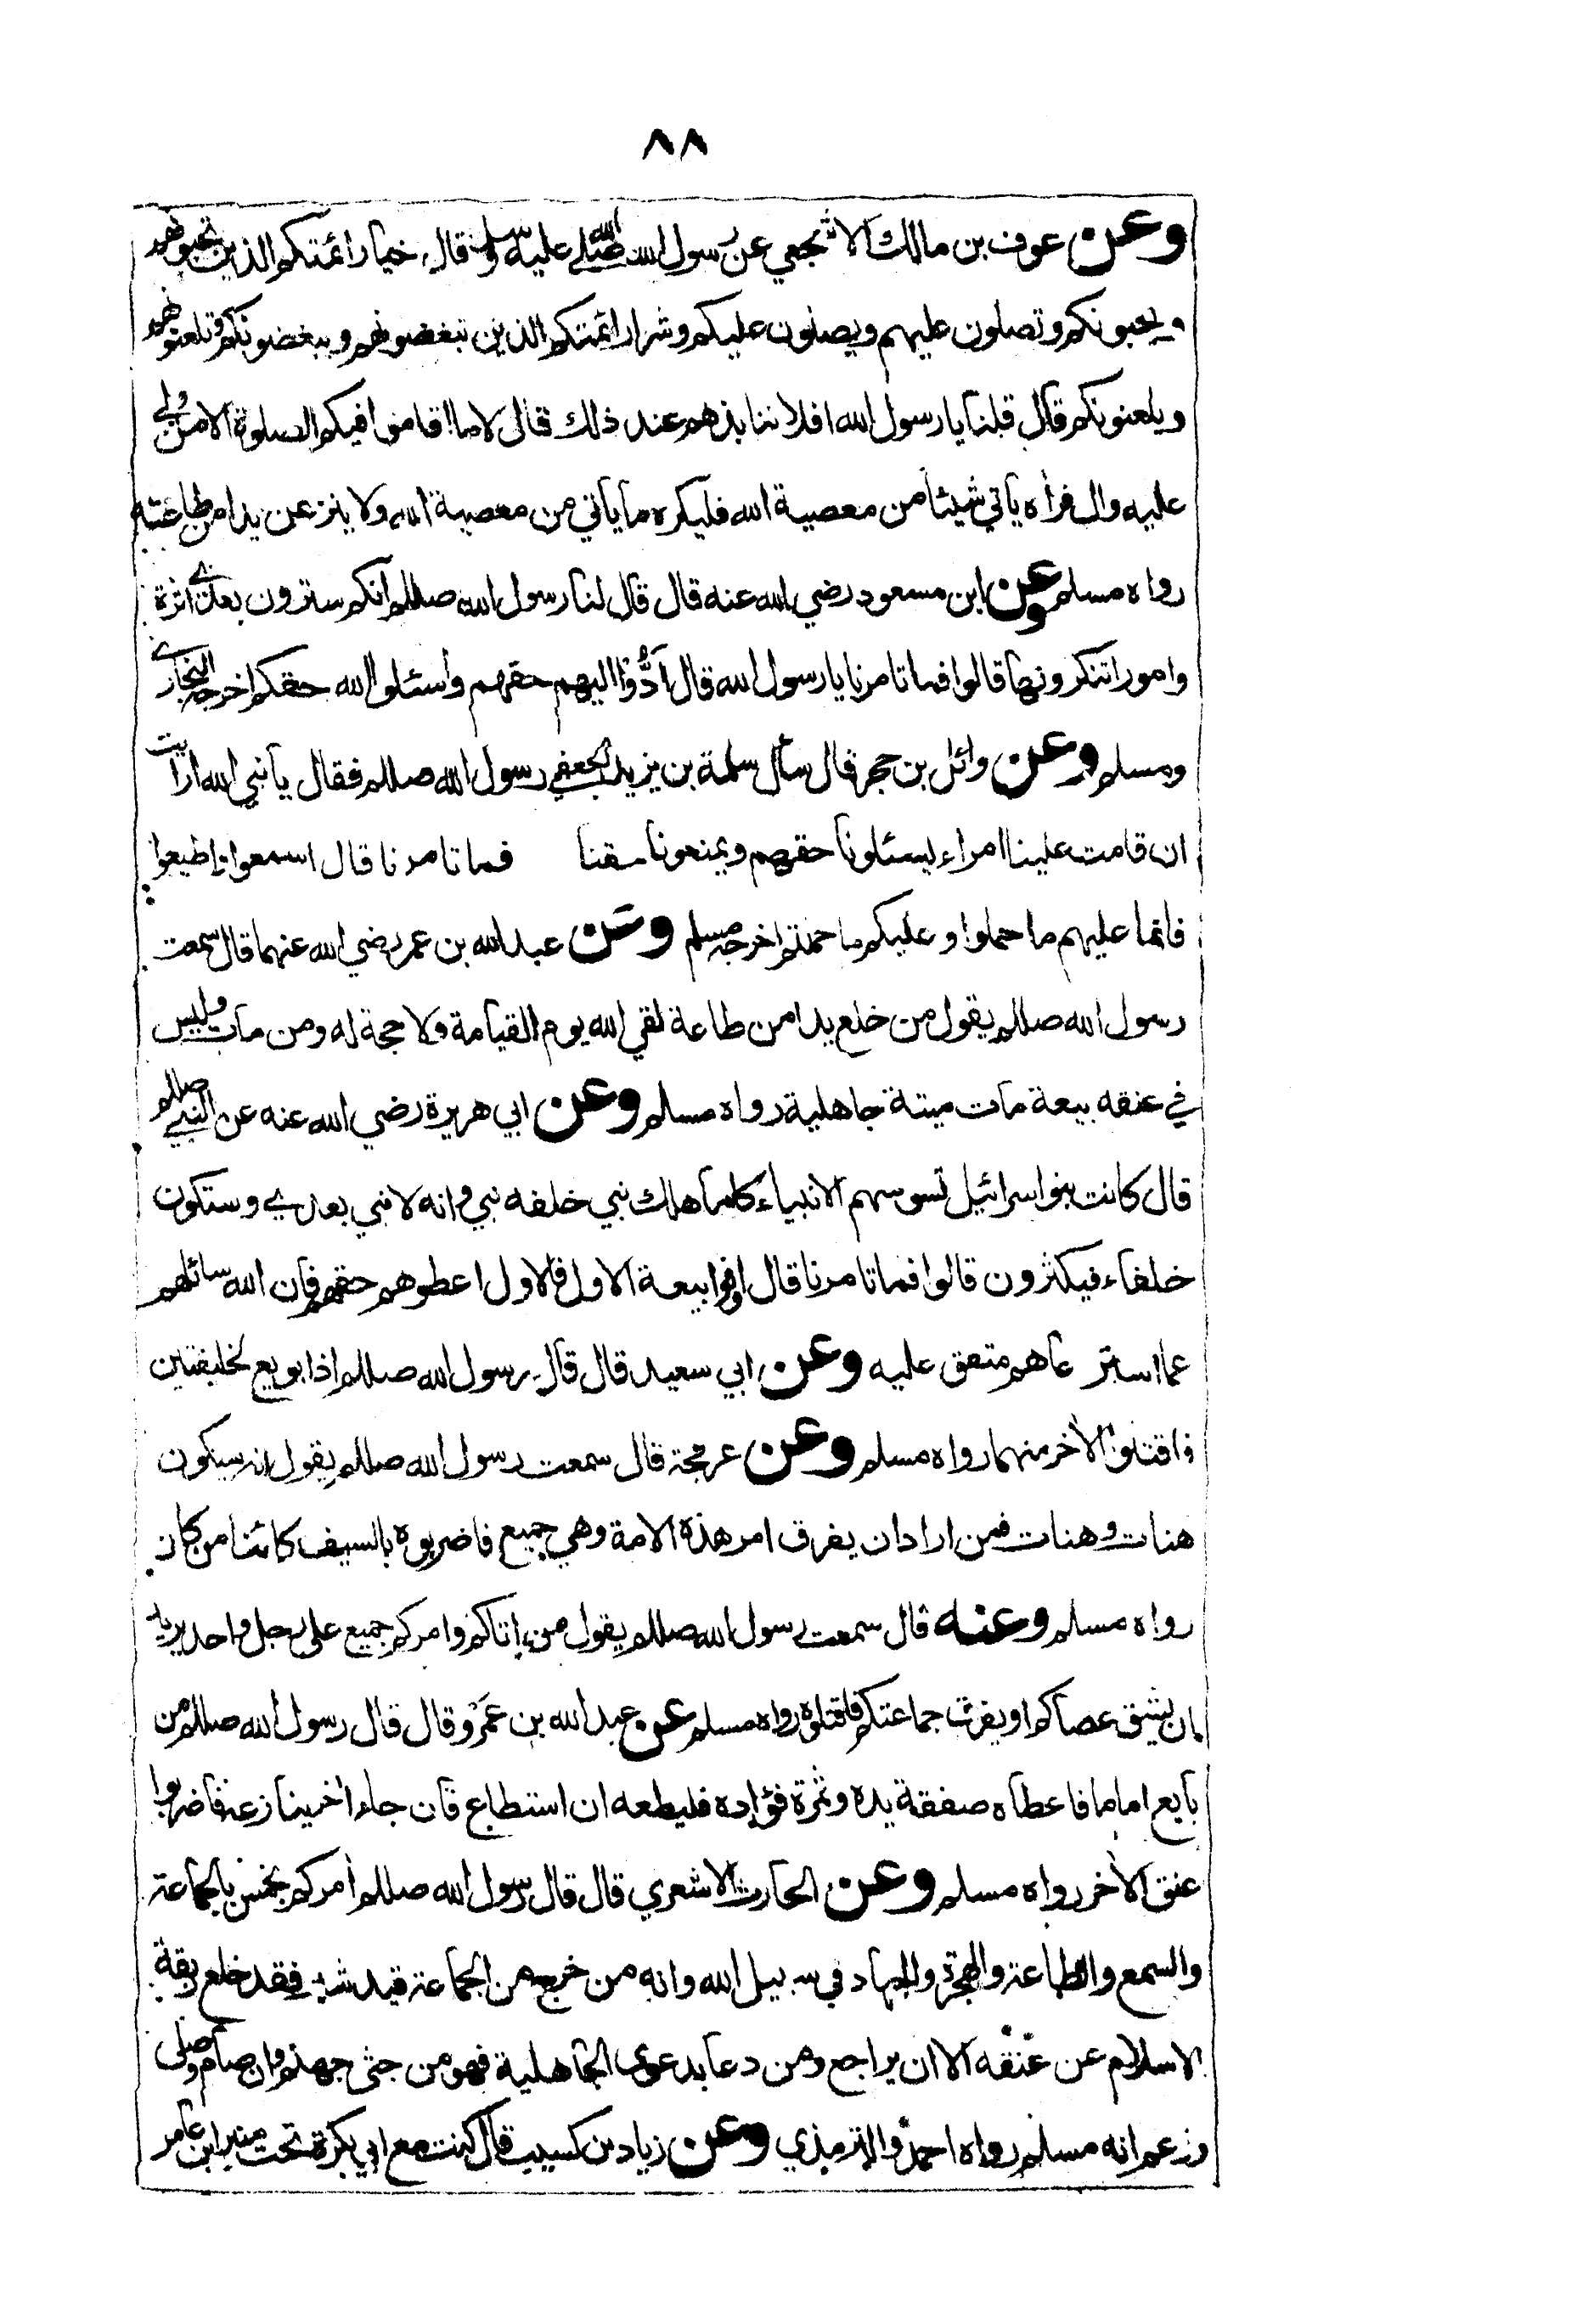 ٨٨
وعن عوف بن مالك الاشجعي عن رسول الله صلى الله عليه وسلم قال خيار ائمتكم الذين تحبونهم
ويحبونكم وتصلون عليهم ويصلون عليكم وشرار ائمتكم الذين تبغضونهم ويبغضونكم وتلعنونهم
ويلعنونكم قال قلنا يا رسول الله افلا ننابذهم عند ذلك قال لا ما اقاموا فيكم الصلوة الا من ولي
عليه وال فرأه يأتي شيئا من معصية الله فليكره ما يأتي من معصية الله ولا ينزعن يدا من طاعته
رواه مسلم وعن ابن مسعود رضي الله عنه قال قال لنا رسول الله صللم انكم سترون بعدي اثرة
وامورا تنكرونها قالوا فما تامرنا يا رسول الله قال اَدُّوْا اليهم حقهم واسئلوا الله حقكم اخرجه البخاري
ومسلم وعن وائل بن حجر قال سأل سلمة بن يزيد الجعفي رسول الله صللم فقال يا نبي الله ارايت
ان قامت علينا امراء يسئلونا حقهم ويمنعونا سقنا فما تامرنا قال اسمعوا واطيعوا
فانما عليهم ما حملوا وعليكم ما حملتم اخرجه مسلم وعن عبد الله بن عمر رضي الله عنهما قال سمعت
رسول الله صللم يقول من خلع يدا من طاعة لقي الله يوم القيامة ولا حجة له ومن مات وليس
في عنقه بيعة مات ميتة جاهلية رواه مسلم وعن ابي هريرة رضي الله عنه عن النبي صللم
قال كانت بنو اسرائيل تسوسهم الانبياء كلما هلك نبي خلفه نبي وانه لا نبي بعدي وستكون
خلفاء فيكثرون قالوا فما تامرنا قال اوفوا بيعة الاول فالاول اعطوهم حقهم فان الله سائلهم
عما استر عاهم متفق عليه وعن ابي سعيد قال قال رسول الله صللم اذا بويع لخليفتين
فاقتلوا الاخر منهما رواه مسلم وعن عرفجة قال سمعت رسول الله صللم يقول انه سيكون
هنات وهنات فمن اراد ان يفرق امر هذه الامة وهي جميع فاضربوه بالسيف كائنا من كان
رواه مسلم وعنه قال سمعت رسول الله صللم يقول من اتاكم وامركم جميع على رجل واحد يريد
ان يشق عصاكم او يفرق جماعتكم فاقتلوه رواه مسلم عن عبد الله بن عَمْرو قال قال رسول الله صللم من
بايع اماما فاعطاه صفقة يده وثمرة فؤاده فليطعه ان استطاع فان جاء اخر ينازعه فاضربوا
عنق الاخر رواه مسلم وعن الحارث الاشعري قال قال رسول الله صللم أمركم بخمس بالجماعة
والسمع والطاعة والهجرة والجهاد في سبيل الله وانه من خرج من الجماعة قيد شبر فقد خلع ربقة
الاسلام عن عنقه الا ان يراجع ومن دعا بدعوى الجاهلية فهو من جثى جهنم وان صام وصلى
وزعم انه مسلم رواه احمد والترمذي وعن زياد بن كسيب قال كنت مع ابي بكرة تحت منبر ابن عامر